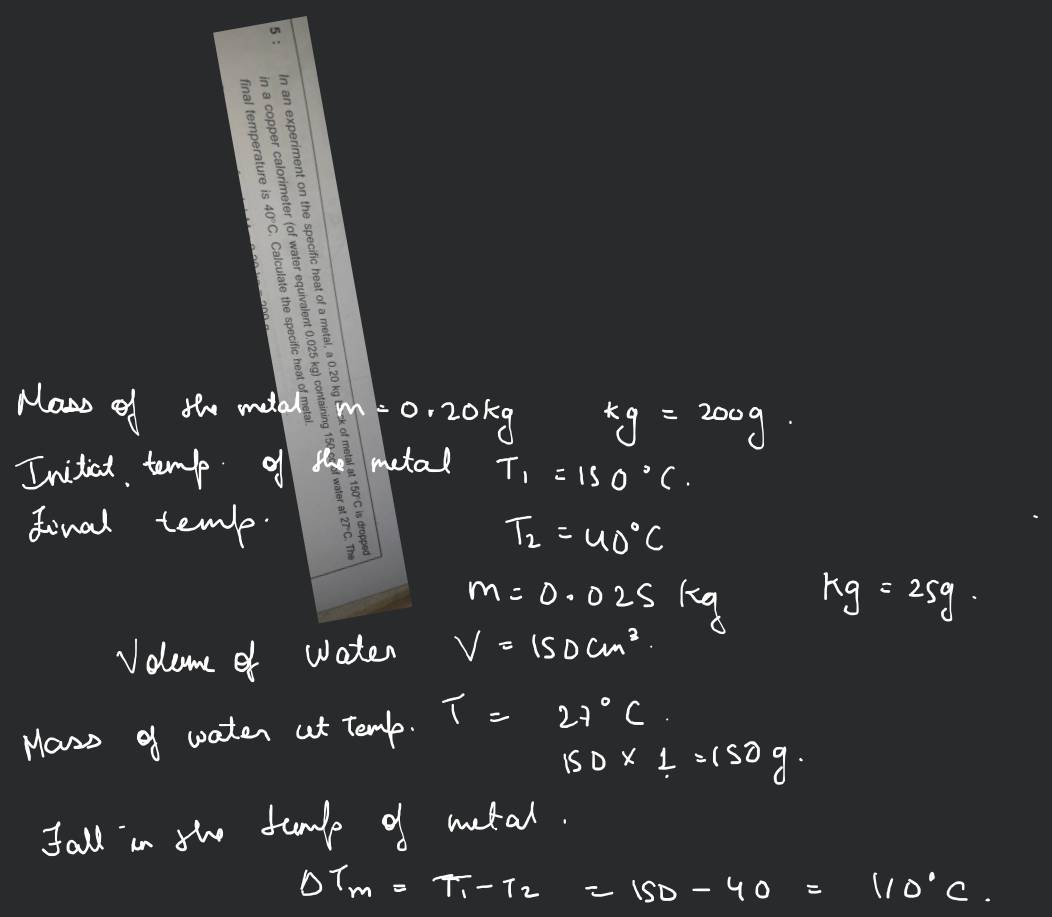 5 : In an experiment on the specific heat of a metal, a 0.20 kg of metal at 150°C is dropped
in a copper calorimeter (of water equivalent 0.025 kg) containing 150 of water at 27°C. The
final temperature is 40°C. Calculate the specific heat of metal.
Mass of the metal m = 0.20kg kg = 200g.
Initial temp. of the metal T1 = 150°C.
Final temp. T2 = 40°C
m = 0.025 kg kg = 25g.
Volume of water V = 150 cm³.
Mass of water at Temp. T = 27°C.
150 x 1 = 150 g.
Fall in the temp of metal.
ΔTm = T1 - T2 = 150 - 40 = 110°C.